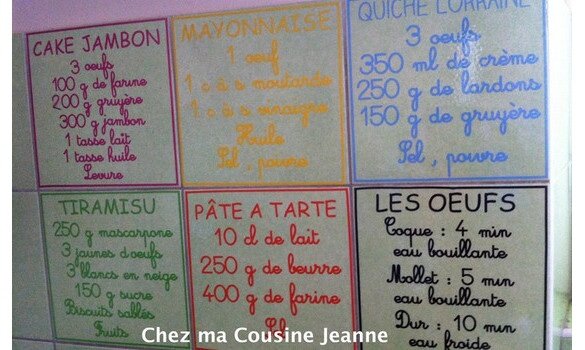 CAKE JAMBON
3 oeufs
100 g de farine
200 g gruyère
300 g jambon
1 tasse lait
1 tasse huile
Levure
MAYONNAISE
1 oeuf
1 c à s moutarde
1 c à s vinaigre
Huile
Sel, poivre
QUICHE LORRAINE
3 oeufs
350 ml de crème
250 g de lardons
150 g de gruyère
Sel, poivre
TIRAMISU
250 g mascarpone
3 jaunes d'oeufs
3 blancs en neige
150 g sucre
Biscuits sablés
Fruits
PÂTE A TARTE
10 cl de lait
250 g de beurre
400 g de farine
Sel
LES OEUFS
Coque : 4 min
eau bouillante
Mollet : 5 min
eau bouillante
Dur : 10 min
eau froide
Chez ma Cousine Jeanne